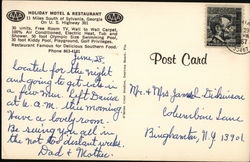 HOLIDAY MOTEL & RESTAURANT
13 Miles South of Sylvania, Georgia
On U. S. Highway 301
30 units, Free Room TV, Wall to Wall Carpet,
100% Air Conditioned, Electric Heat, Tub and
Shower, 50 foot Olympic Size Swimming Pool,
30 foot Kiddy Pool, Playground, Golf Privileges.
Restaurant Famous for Delicious Southern Food.
Phone
Post Card
June, 28,
Located for the night
and going to get into in
a few mins. Left Devine at
6 A.M. this morning!
Have a lovely room.
Be seeing you all in
the not too distant weeks.
Dad & Mother.
Mr. & Mrs Jansel Dickinson
Columbine Lane
Binghamton, N.Y. 13901